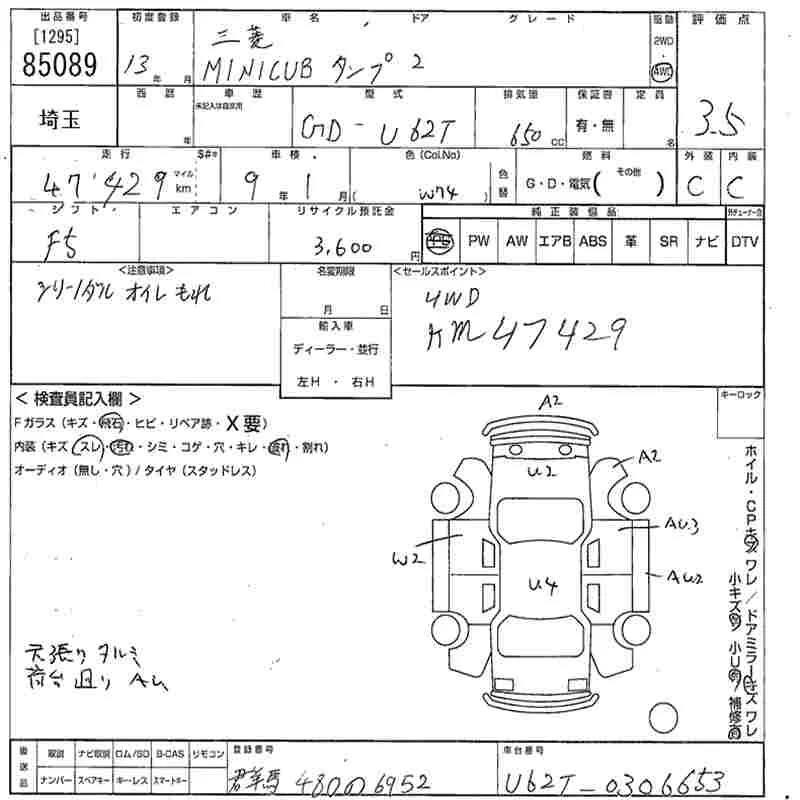 出品番号 初度登録 車名 ドア グレード 駆動 評価点
[1295] 三菱 2WD
85089 13年 月 MINICUB ダンプ 2 4WD
西暦 車歴 型式 排気量 保証書 定員 3.5
未記入は自家用
埼玉 年 GD-U62T 650cc 有・無 名
走行 $#※ 車検 色(Col.No) 燃料 外装 内装
47'429 マイル km 9年1月 ( W74 ) 色替 G・D・電気( その他 ) C C
シフト エアコン リサイクル預託金 純正装備品
F5 3,600円 PS PW AW エアB ABS 革 SR ナビ DTV
<注意事項> 名変期限 <セールスポイント>
シリーンダル オイルもれ 月 日 4WD
輸入車 KM 47429
ディーラー・並行
左H・右H
<検査員記入欄> キーロック
Fガラス(キズ・飛石・ヒビ・リペア跡・X要)
内装(キズ スレ・汚れ・シミ・コゲ・穴・キレ・破れ・割れ)
オーディオ(無し・穴)/タイヤ(スタッドレス)
A2
U2 A2
AU3
W2 AU2
U4
ホイル・CPキズ ワレ/ドアミラーキズ ワレ
小キズ有 小U有 補修有
天張り タルミ
荷台廻り AU
後送品 取説 ナビ取説 ロム/SD B-CAS リモコン 登録番号 車台番号
ナンバー スペアキー キーレス スマートキー 群馬 480の6952 U62T-0306653